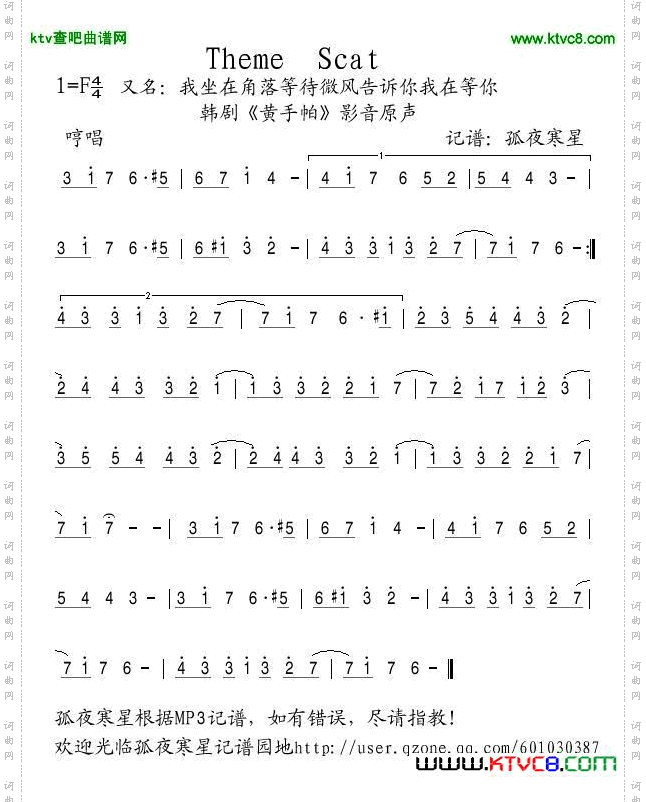 ktv查吧曲谱网
www.ktvc8.com
Theme Scat
1=F4/4 又名：我坐在角落等待微风告诉你我在等你
韩剧《黄手帕》影音原声
哼唱 记谱：孤夜寒星
1
3 i 7 6·#5 | 6 7 i 4 - | 4 i 7 6 5 2 | 5 4 4 3 - |
3 i 7 6·#5 | 6 #i 3 2 - | 4 3 3 i 3 2 7 | 7 i 7 6 - :||
2
4 3 3 i 3 2 7 | 7 i 7 6 ·#i | 2 3 5 4 4 3 2 |
2 4 4 3 3 2 i | i 3 3 2 2 i 7 | 7 2 i 7 i 2 3 |
3 5 5 4 4 3 2 | 2 4 4 3 3 2 i | i 3 3 2 2 i 7 |
7 i 7 - - | 3 i 7 6·#5 | 6 7 i 4 - | 4 i 7 6 5 2 |
5 4 4 3 - | 3 i 7 6 ·#5 | 6 #i 3 2 - | 4 3 3 i 3 2 7 |
7 i 7 6 - | 4 3 3 i 3 2 7 | 7 i 7 6 - ||
孤夜寒星根据MP3记谱，如有错误，尽请指教！
欢迎光临孤夜寒星记谱园地http://user.qzone.qq.com/601030387
www.KTVC8.com
词曲网